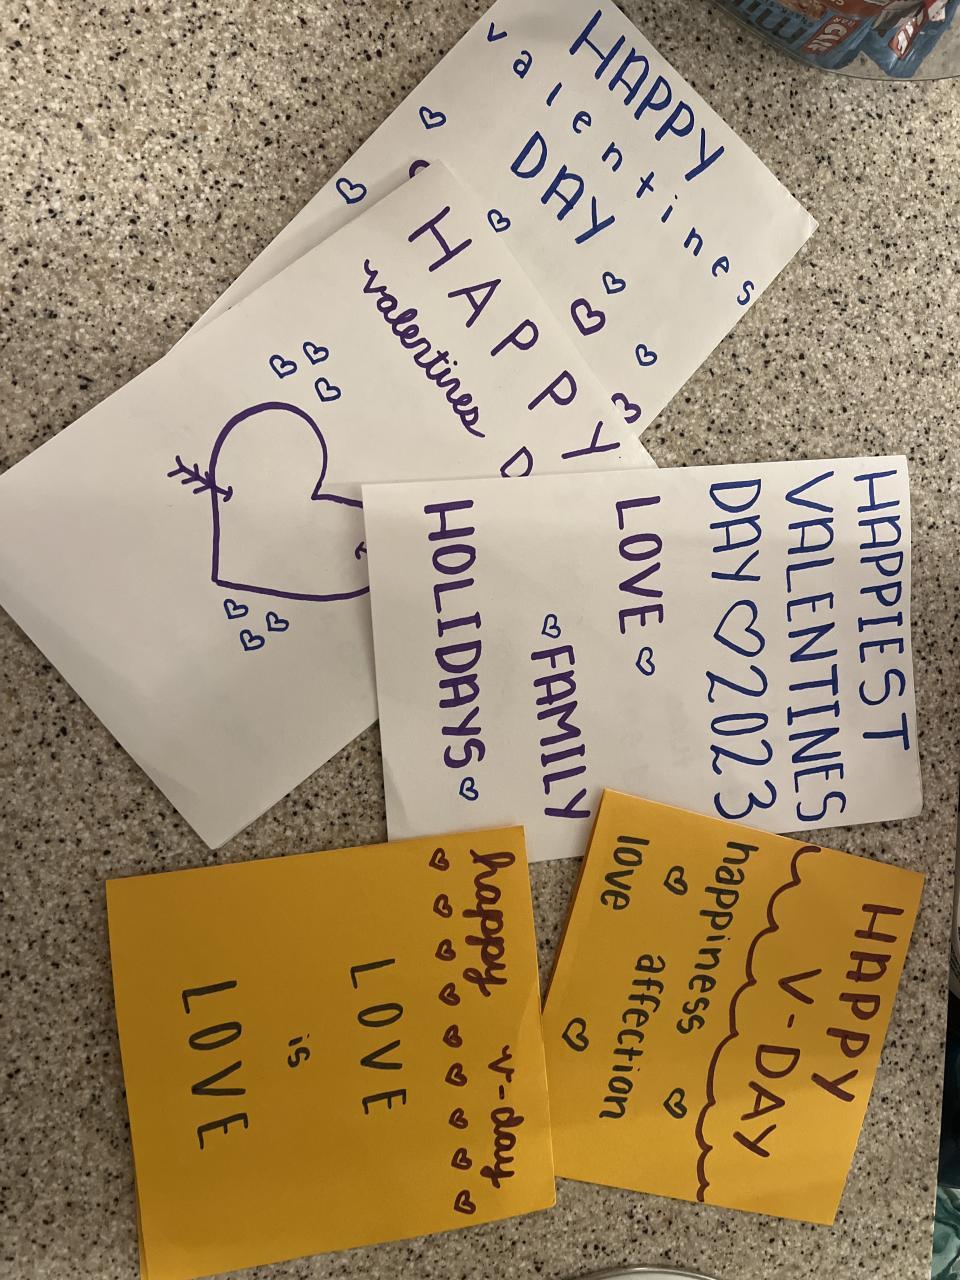 HAPPY
valentines
DAY
HAPPY
valentines
D
HAPPIEST
VALENTINES
DAY 2023
LOVE
FAMILY
HOLIDAYS
HAPPY
V-DAY
happiness
love affection
happy v-day
LOVE
is
LOVE
CLIF
CLIF